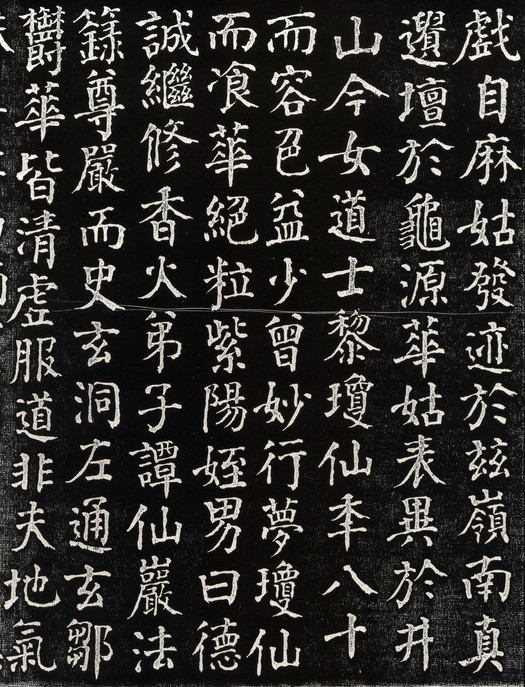 戲自麻姑發迹於玆嶺南真
遺壇於龜源華姑表異於井
山今女道士黎瓊仙秊八十
而容色益少曾妙行夢瓊仙
而飡華絕粒紫陽姪男曰德
誠繼修香火弟子譚仙巖法
籙尊嚴而史玄洞左通玄鄒
欝華皆清虛服道非夫地氣